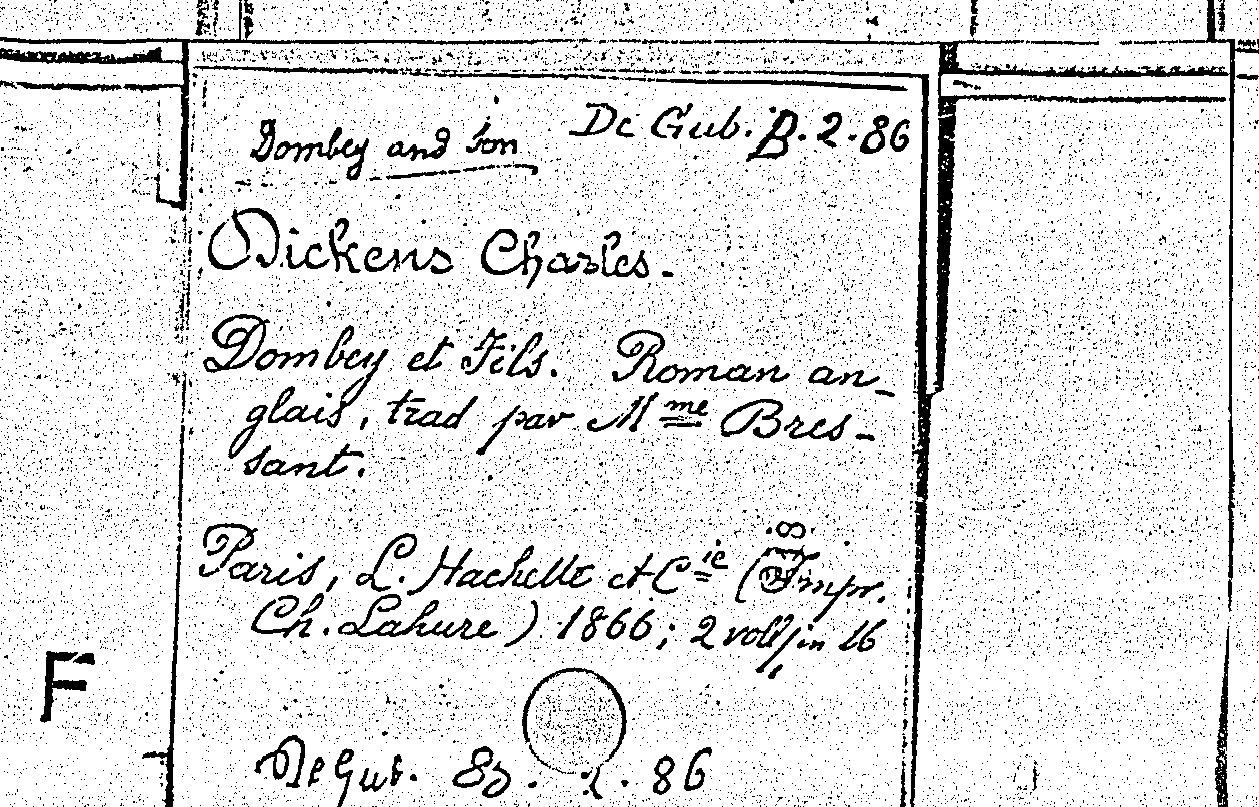 Dombey and Son De Gub. B.2.86
Dickens Charles.
Dombey et Fils. Roman an-
glais, trad par Mme Bres-
sant.
Paris, L. Hachette et Cie (Impr.
Ch. Lahure) 1866; 2 voll in 16
F
De Gub. B. 2. 86